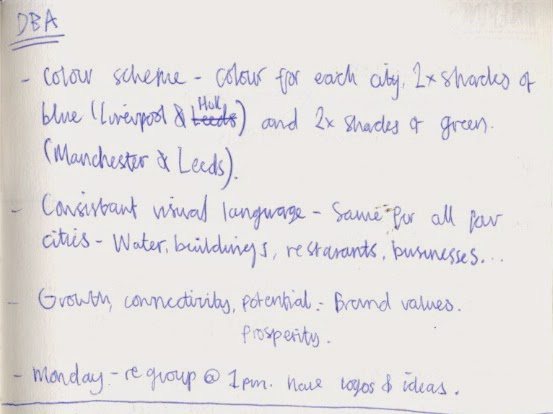 DBA
- Colour scheme - colour for each city, 2x shades of
blue (Liverpool & Hull) and 2x shades of green.
(Manchester & Leeds).
- Consistant visual language - Same for all four
cities - Water, buildings, restarants, businesses...
- Growth, connectivity, potential - Brand values.
prosperity.
- Monday - regroup @ 1pm. have logos & ideas.